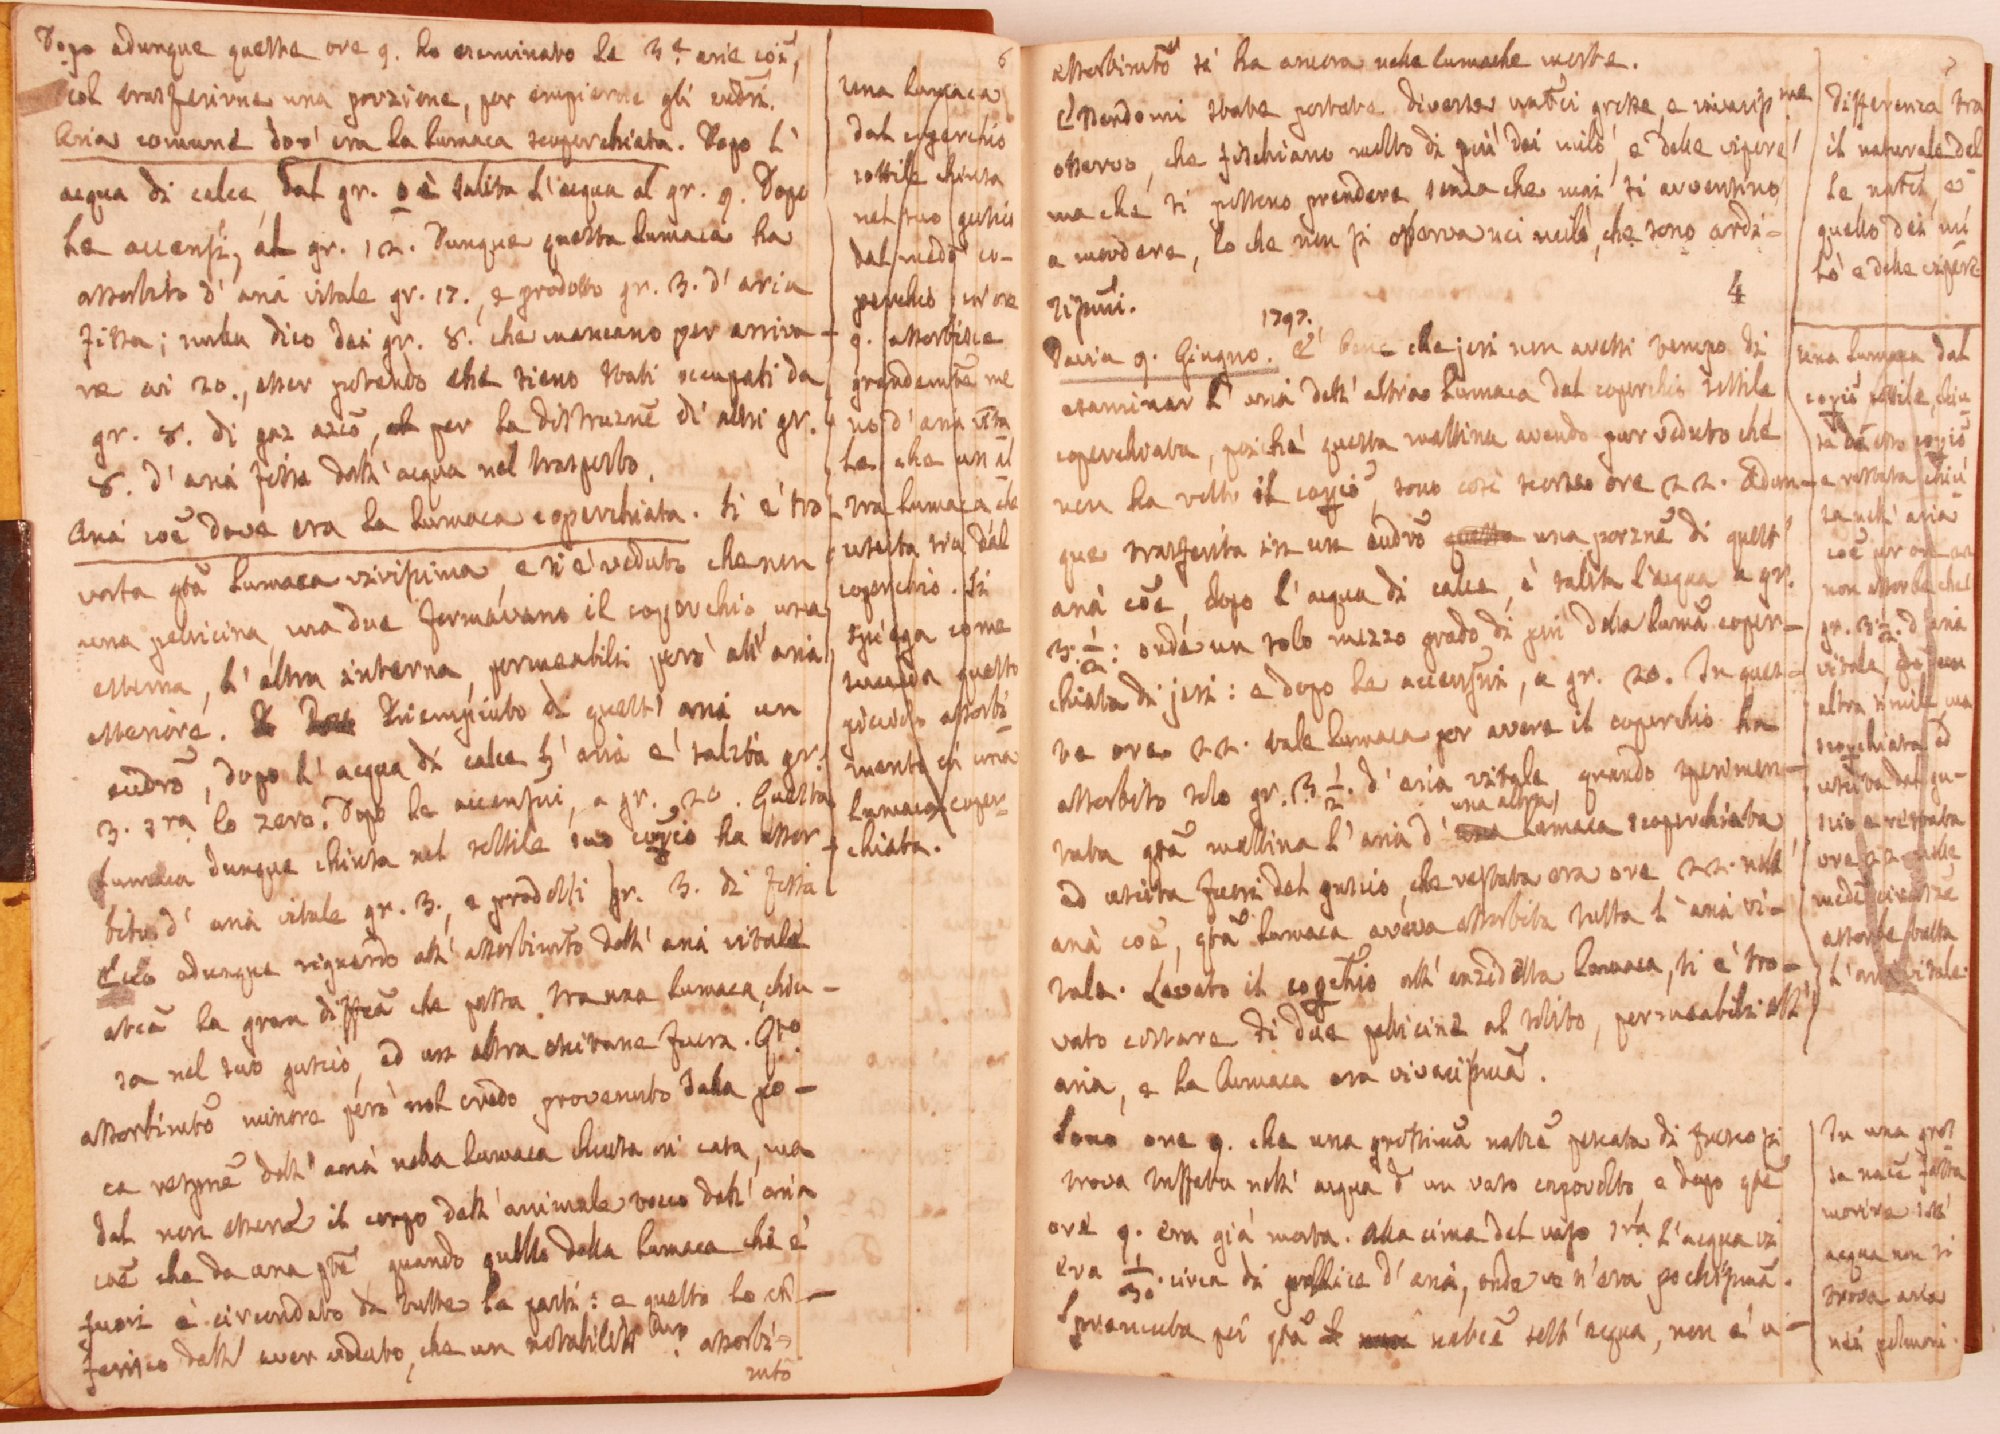 Dopo adunque queste ore 9. ho esaminato le 3.e arie coĩ,
col trasferirne una porzione, per empierne gli eudrĩ.
Aria comune dov' era la lumaca scoperchiata. Dopo l'
acqua di calce, dal gr. 0 è salita l'acqua al gr. 9. Dopo
le accensĩ, al gr. 12. Dunque questa lumaca ha
assorbito d' aria vitale gr. 17., e prodotto gr. 3. d' aria
fissa; nulla dico dei gr. 8. che mancano per arriva-
re ai 20., esser potendo che sieno stati occupati da
gr. 8. di gaz azcõ, per la distruznẽ di altri gr.
8. d' aria fissa dall' acqua nel trasporto.
Aria coẽ dove era la lumaca coperchiata. Si è tro-
vata q̃ta lumaca vivissima, e si è veduto che non
una pellicina, ma due formavano il coperchio, una
esterna, l' altra interna, permeabili però all' aria
esteriore. Riempiuto di quest' aria un
eudrõ, dopo l' acqua di calce l' aria è salita gr.
3. sra lo zero. Dopo le accensĩni, a gr. 20. Questa
lumaca dunque chiusa nel sottile suo copcio ha assor-
bito d' aria vitale gr. 3., e prodotti gr. 3. di fissa
Ecco adunque riguardo all' assorbimtõ dell' aria vitale
la gran diffcã che passa tra una lumaca chiu-
sa nel suo guscio, ed un altra che ne fuora. Qto
assorbimtõ minore però nol credo provenuto dalla po-
ca respnẽ dell' aria nella lumaca chiusa in casa, ma
dal non essere il corpo dell' animale tocco dall' aria
coẽ che da una ptẽ, quando quello della lumaca che è
fuori è circondato da tutte le parti: e questo lo in-
ferisco dall' aver veduto, che un notabiliss.mo assorbi-
mtõ
6
Una lumaca
dal coperchio
sottile chiusa
nel suo guscio
dal medõ co-
perchio, in ore
9. assorbisce
grandemtẽ me
no d' aria vita
le che un al
tra lumaca che
uscita sia dal
coperchio. Si
spiega come
succeda questo
piccolo assorbi-
mento in una
lumaca coper-
chiata.
assorbimtõ si ha ancora nelle lumache morte.
Essendomi state portate diverse natrĩci grosse, e vivaciss.me
osservo, che fischiano molto di più dei milò, e delle vipere,
ma che si possono prendere senza che mai si avventino
a mordere, lo che non si osserva nei milò, che sono ardi-
tissimi.
4
1797.
Pavia 9. Giugno. È bene che jeri non avessi tempo di
esaminar l' aria dell' altra lumaca dal coperchio sottile
coperchiata, poichè questa mattina avendo pur veduto che
non ha rotto il copciõ, sono così scorse ore 22. Adun-
que trasferita in un eudrõ una porznẽ di quest'
aria coẽ, dopo l' acqua di calce, è salita l'acqua a gr.
3. 1/2: onde un solo mezzo grado di più della lumã coper-
chiata di jeri: e dopo le accensĩni, a gr. 20. In ques-
te ore 22. tale lumaca per avere il coperchio ha
assorbito solo gr. 3 1/2. d' aria vitale, quando sperimen-
tata q̃ta mattina l' aria d' una altra lumaca scoperchiata,
ed uscita fuori del guscio, che restata era ore 22. nell'
aria coẽ, q̃ta lumaca aveva assorbita tutta l' aria vi-
tale. Levato il copchio all' anzidetta lumaca, si è tro-
vato costare di due pellicine al solito, permeabili all'
aria, e la lumaca era vivacissimã.
Sono ore 9. che una grossimã natrcẽ pescata di fresco si
trova tuffata nell' acqua d' un vaso capovolto, e dopo q̃te
ore 9. era già morta. Alla cima del vaso sra l'acqua vi
era 1/30. circa di pollice d' aria, onde ve n' era pochissimã.
Sparcuta per q̃ta natrcẽ sott' acqua, non è u-
7
Differenza tra
il naturale del
le natrĩ, e
quello dei mi
lò e delle vipere
Una lumaca dal
copciõ sottile, chiu
sa da esso copciõ
e restata chiu
sa nell' aria
coẽ per ore 22
non assorbe che
gr. 3 1/2. d' aria
vitale, q̃do un
altra simile, ma
scopchiata ed
uscita dal gu-
scio e restata
ore 22 nelle
medẽ circostzẽ
assorbe tutta
l' aria vitale.
In una gros
sa natcẽ fatta
morire sott'
acqua non si
trova aria
nei polmoni.